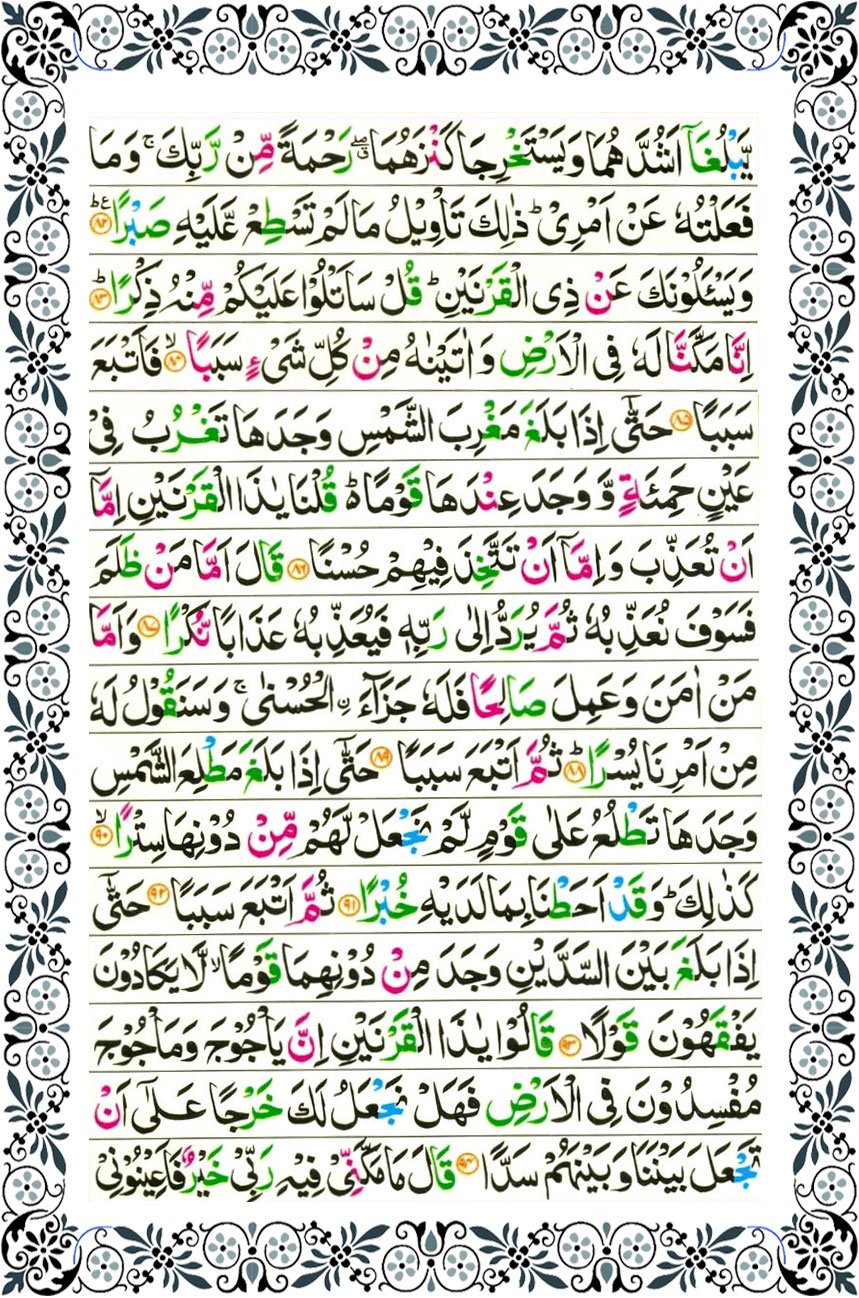 يَّبْلُغَاۤ اَشُدَّهُمَا وَيَسْتَخْرِجَا كَنْزَهُمَا ۖۗ رَحْمَةً مِّنْ رَّبِّكَ ۚ وَمَا
فَعَلْتُهٗ عَنْ اَمْرِىْ ؕ ذٰلِكَ تَاْوِيْلُ مَا لَمْ تَسْطِعْ عَّلَيْهِ صَبْرًا ؕ ع ۸۲
وَيَسْئَلُوْنَكَ عَنْ ذِى الْقَرْنَيْنِ ؕ قُلْ سَاَتْلُوْا عَلَيْكُمْ مِّنْهُ ذِكْرًا ؕ ۸۳
اِنَّا مَكَّنَّا لَهٗ فِى الْاَرْضِ وَاٰتَيْنٰهُ مِنْ كُلِّ شَىْءٍ سَبَبًا ۙ ۸۴ فَاَتْبَعَ
سَبَبًا ۸۵ حَتّٰٓى اِذَا بَلَغَ مَغْرِبَ الشَّمْسِ وَجَدَهَا تَغْرُبُ فِىْ
عَيْنٍ حَمِئَةٍ وَّ وَجَدَ عِنْدَهَا قَوْمًا ؕ قُلْنَا يٰذَا الْقَرْنَيْنِ اِمَّاۤ
اَنْ تُعَذِّبَ وَاِمَّاۤ اَنْ تَتَّخِذَ فِيْهِمْ حُسْنًا ۸۶ قَالَ اَمَّا مَنْ ظَلَمَ
فَسَوْفَ نُعَذِّبُهٗ ثُمَّ يُرَدُّ اِلٰى رَبِّهٖ فَيُعَذِّبُهٗ عَذَابًا نُّكْرًا ۸۷ وَاَمَّا
مَنْ اٰمَنَ وَعَمِلَ صَالِحًا فَلَهٗ جَزَآءَ ۨالْحُسْنٰى ۚ وَسَنَقُوْلُ لَهٗ
مِنْ اَمْرِنَا يُسْرًا ؕ ۸۸ ثُمَّ اَتْبَعَ سَبَبًا ۸۹ حَتّٰٓى اِذَا بَلَغَ مَطْلِعَ الشَّمْسِ
وَجَدَهَا تَطْلُعُ عَلٰى قَوْمٍ لَّمْ نَجْعَلْ لَّهُمْ مِّنْ دُوْنِهَا سِتْرًا ۙ ۹۰
كَذٰلِكَ ؕ وَقَدْ اَحَطْنَا بِمَا لَدَيْهِ خُبْرًا ۹۱ ثُمَّ اَتْبَعَ سَبَبًا ۹۲ حَتّٰٓى
اِذَا بَلَغَ بَيْنَ السَّدَّيْنِ وَجَدَ مِنْ دُوْنِهِمَا قَوْمًا ۙ لَّا يَكَادُوْنَ
يَفْقَهُوْنَ قَوْلًا ۹۳ قَالُوْا يٰذَا الْقَرْنَيْنِ اِنَّ يَاْجُوْجَ وَمَاْجُوْجَ
مُفْسِدُوْنَ فِى الْاَرْضِ فَهَلْ نَجْعَلُ لَكَ خَرْجًا عَلٰٓى اَنْ
تَجْعَلَ بَيْنَنَا وَبَيْنَهُمْ سَدًّا ۹۴ قَالَ مَا مَكَّنِّىْ فِيْهِ رَبِّىْ خَيْرٌ فَاَعِيْنُوْنِىْ